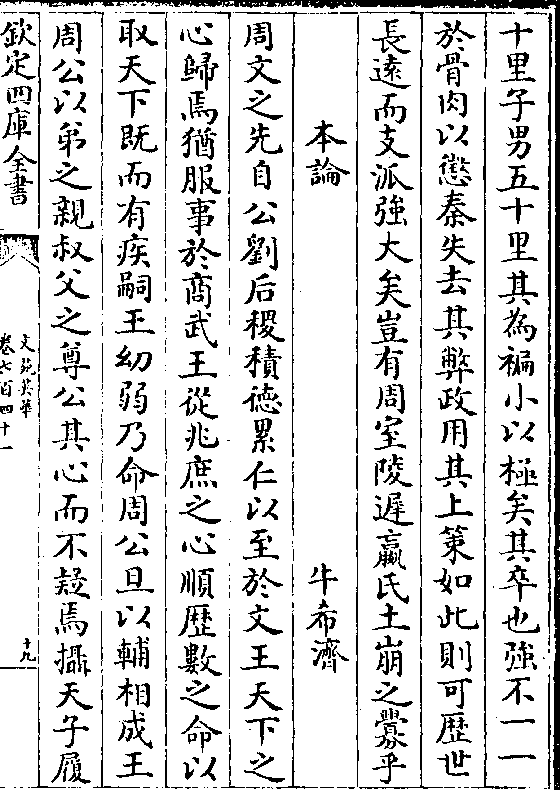 十里子男五十里其為褊小以極矣其卒也強不一一
於骨肉以懲秦失去其弊政用其上策如此則可歴世
長逺而支派強大矣豈有周室陵遲嬴氏土崩之釁乎
本論 牛希濟
周文之先自公劉后稷積徳累仁以至於文王天下之
心歸焉猶服事於商武王從兆庶之心順歴數之命以
取天下既而有疾嗣王幼弱乃命周公旦以輔相成王
周公以弟之親叔父之尊公其心而不疑焉攝天子履
欽定四庫全書
文苑英華
卷七百四十一
十九